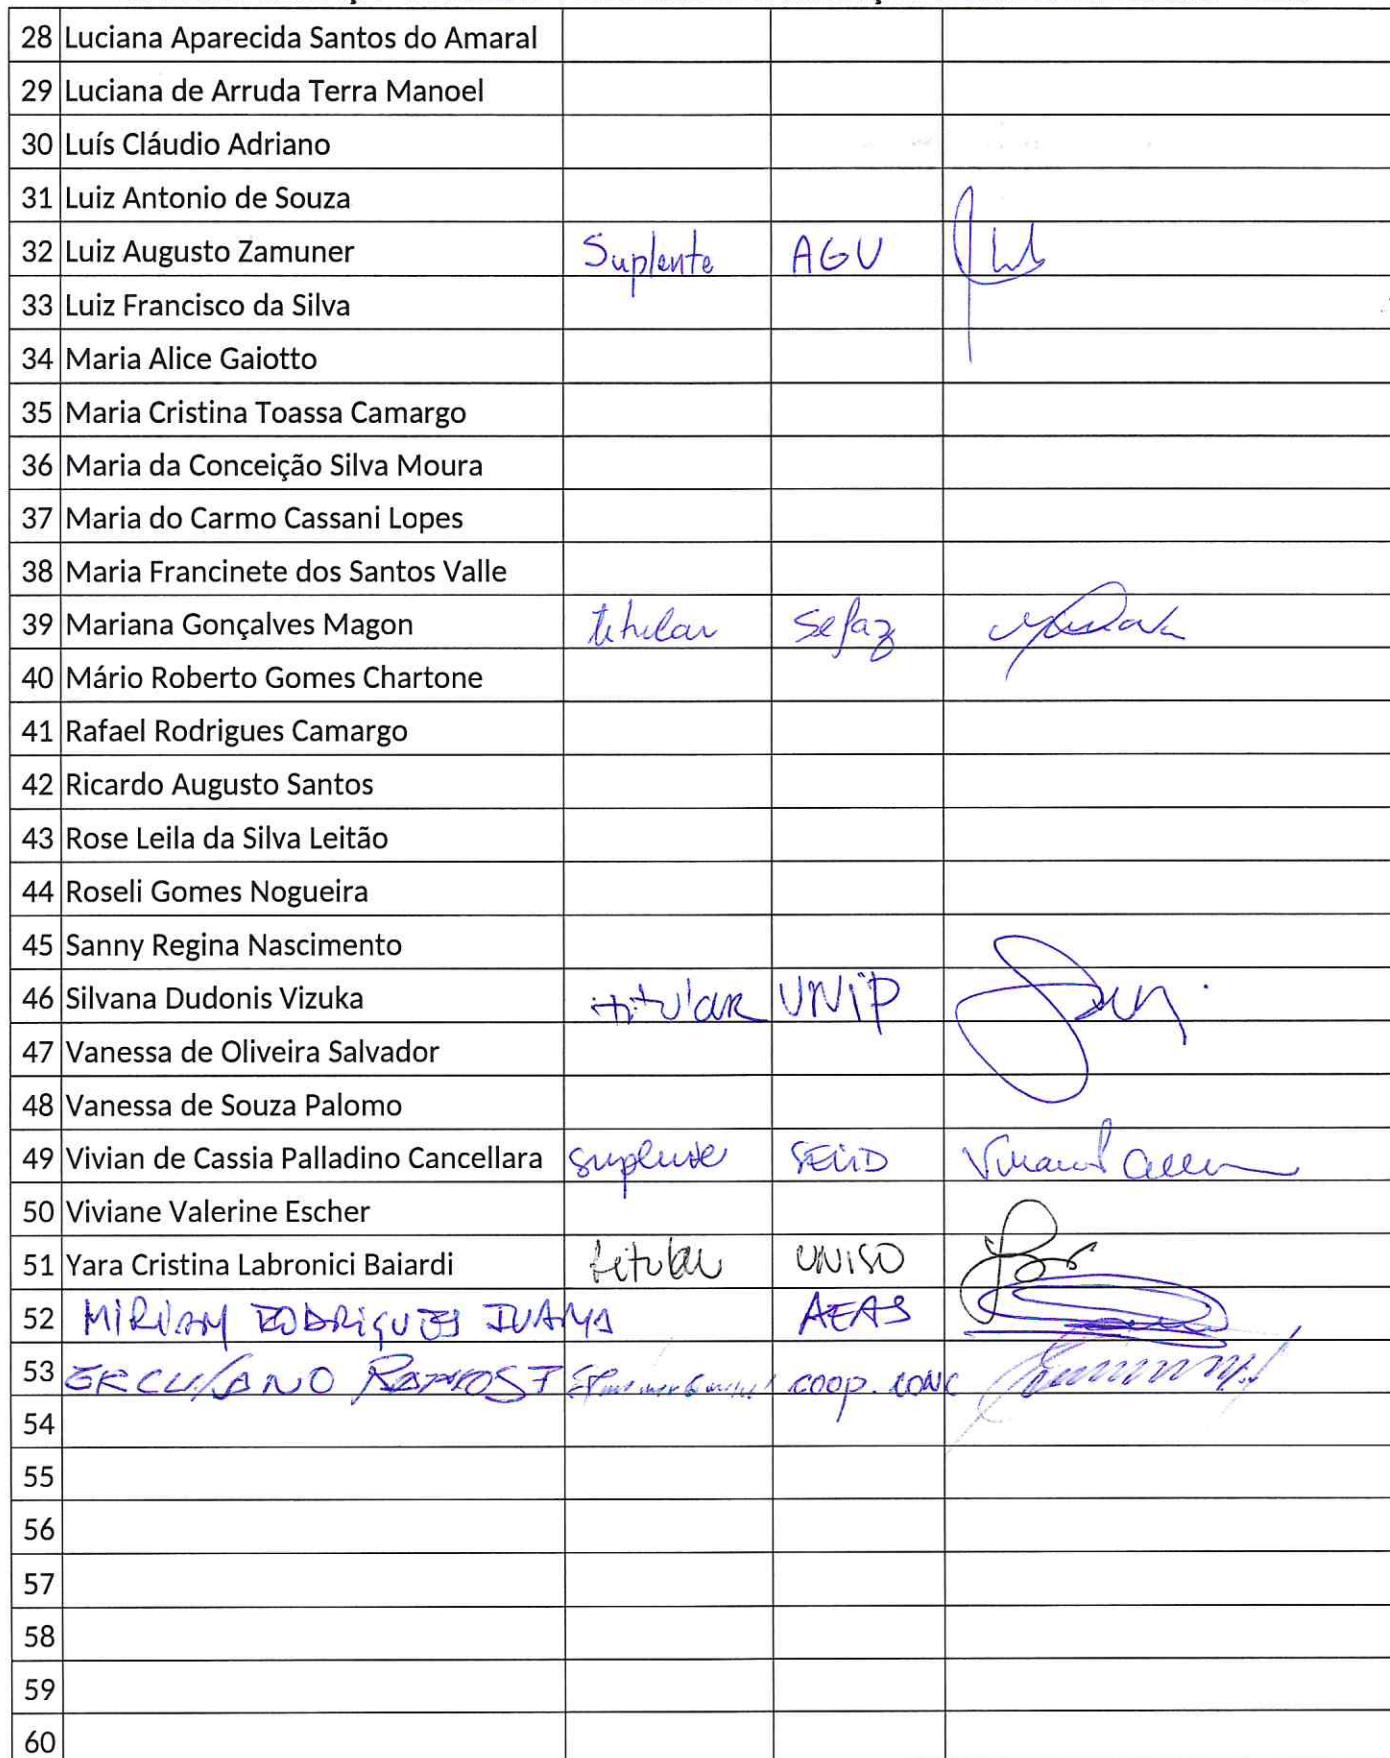 28 Luciana Aparecida Santos do Amaral
29 Luciana de Arruda Terra Manoel
30 Luís Cláudio Adriano
31 Luiz Antonio de Souza
32 Luiz Augusto Zamuner Suplente AGU
33 Luiz Francisco da Silva
34 Maria Alice Gaiotto
35 Maria Cristina Toassa Camargo
36 Maria da Conceição Silva Moura
37 Maria do Carmo Cassani Lopes
38 Maria Francinete dos Santos Valle
39 Mariana Gonçalves Magon titular Sefaz
40 Mário Roberto Gomes Chartone
41 Rafael Rodrigues Camargo
42 Ricardo Augusto Santos
43 Rose Leila da Silva Leitão
44 Roseli Gomes Nogueira
45 Sanny Regina Nascimento
46 Silvana Dudonis Vizuka titular UNiP
47 Vanessa de Oliveira Salvador
48 Vanessa de Souza Palomo
49 Vivian de Cassia Palladino Cancellara suplente
50 Viviane Valerine Escher
51 Yara Cristina Labronici Baiardi titular UNISO
52 MIRIAM RODRIGUES AEAS
53 coop.
54
55
56
57
58
59
60